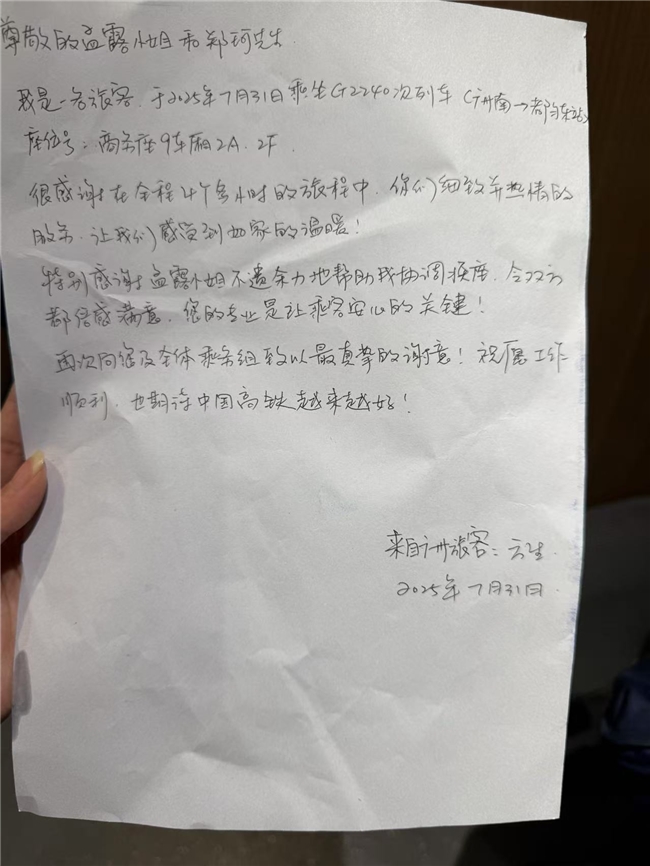 尊敬的孟露小姐和郑珂先生
我是一名旅客，于2025年7月31日乘坐G2240次列车（广州南→都东站）
座位号：商务座9车厢2A、2F.
很感谢在全程4个多小时的旅程中，你们细致并热情的
服务，让我们感受到如家的温暖！
特别感谢孟露小姐不遗余力地帮助我协调换座，令双方
都倍感满意，您的专业是让乘客安心的关键！
再次向您及全体乘务组致以最真挚的谢意！祝愿工作
顺利，也期待中国高铁越来越好！
来自广州旅客：云生
2025年7月31日